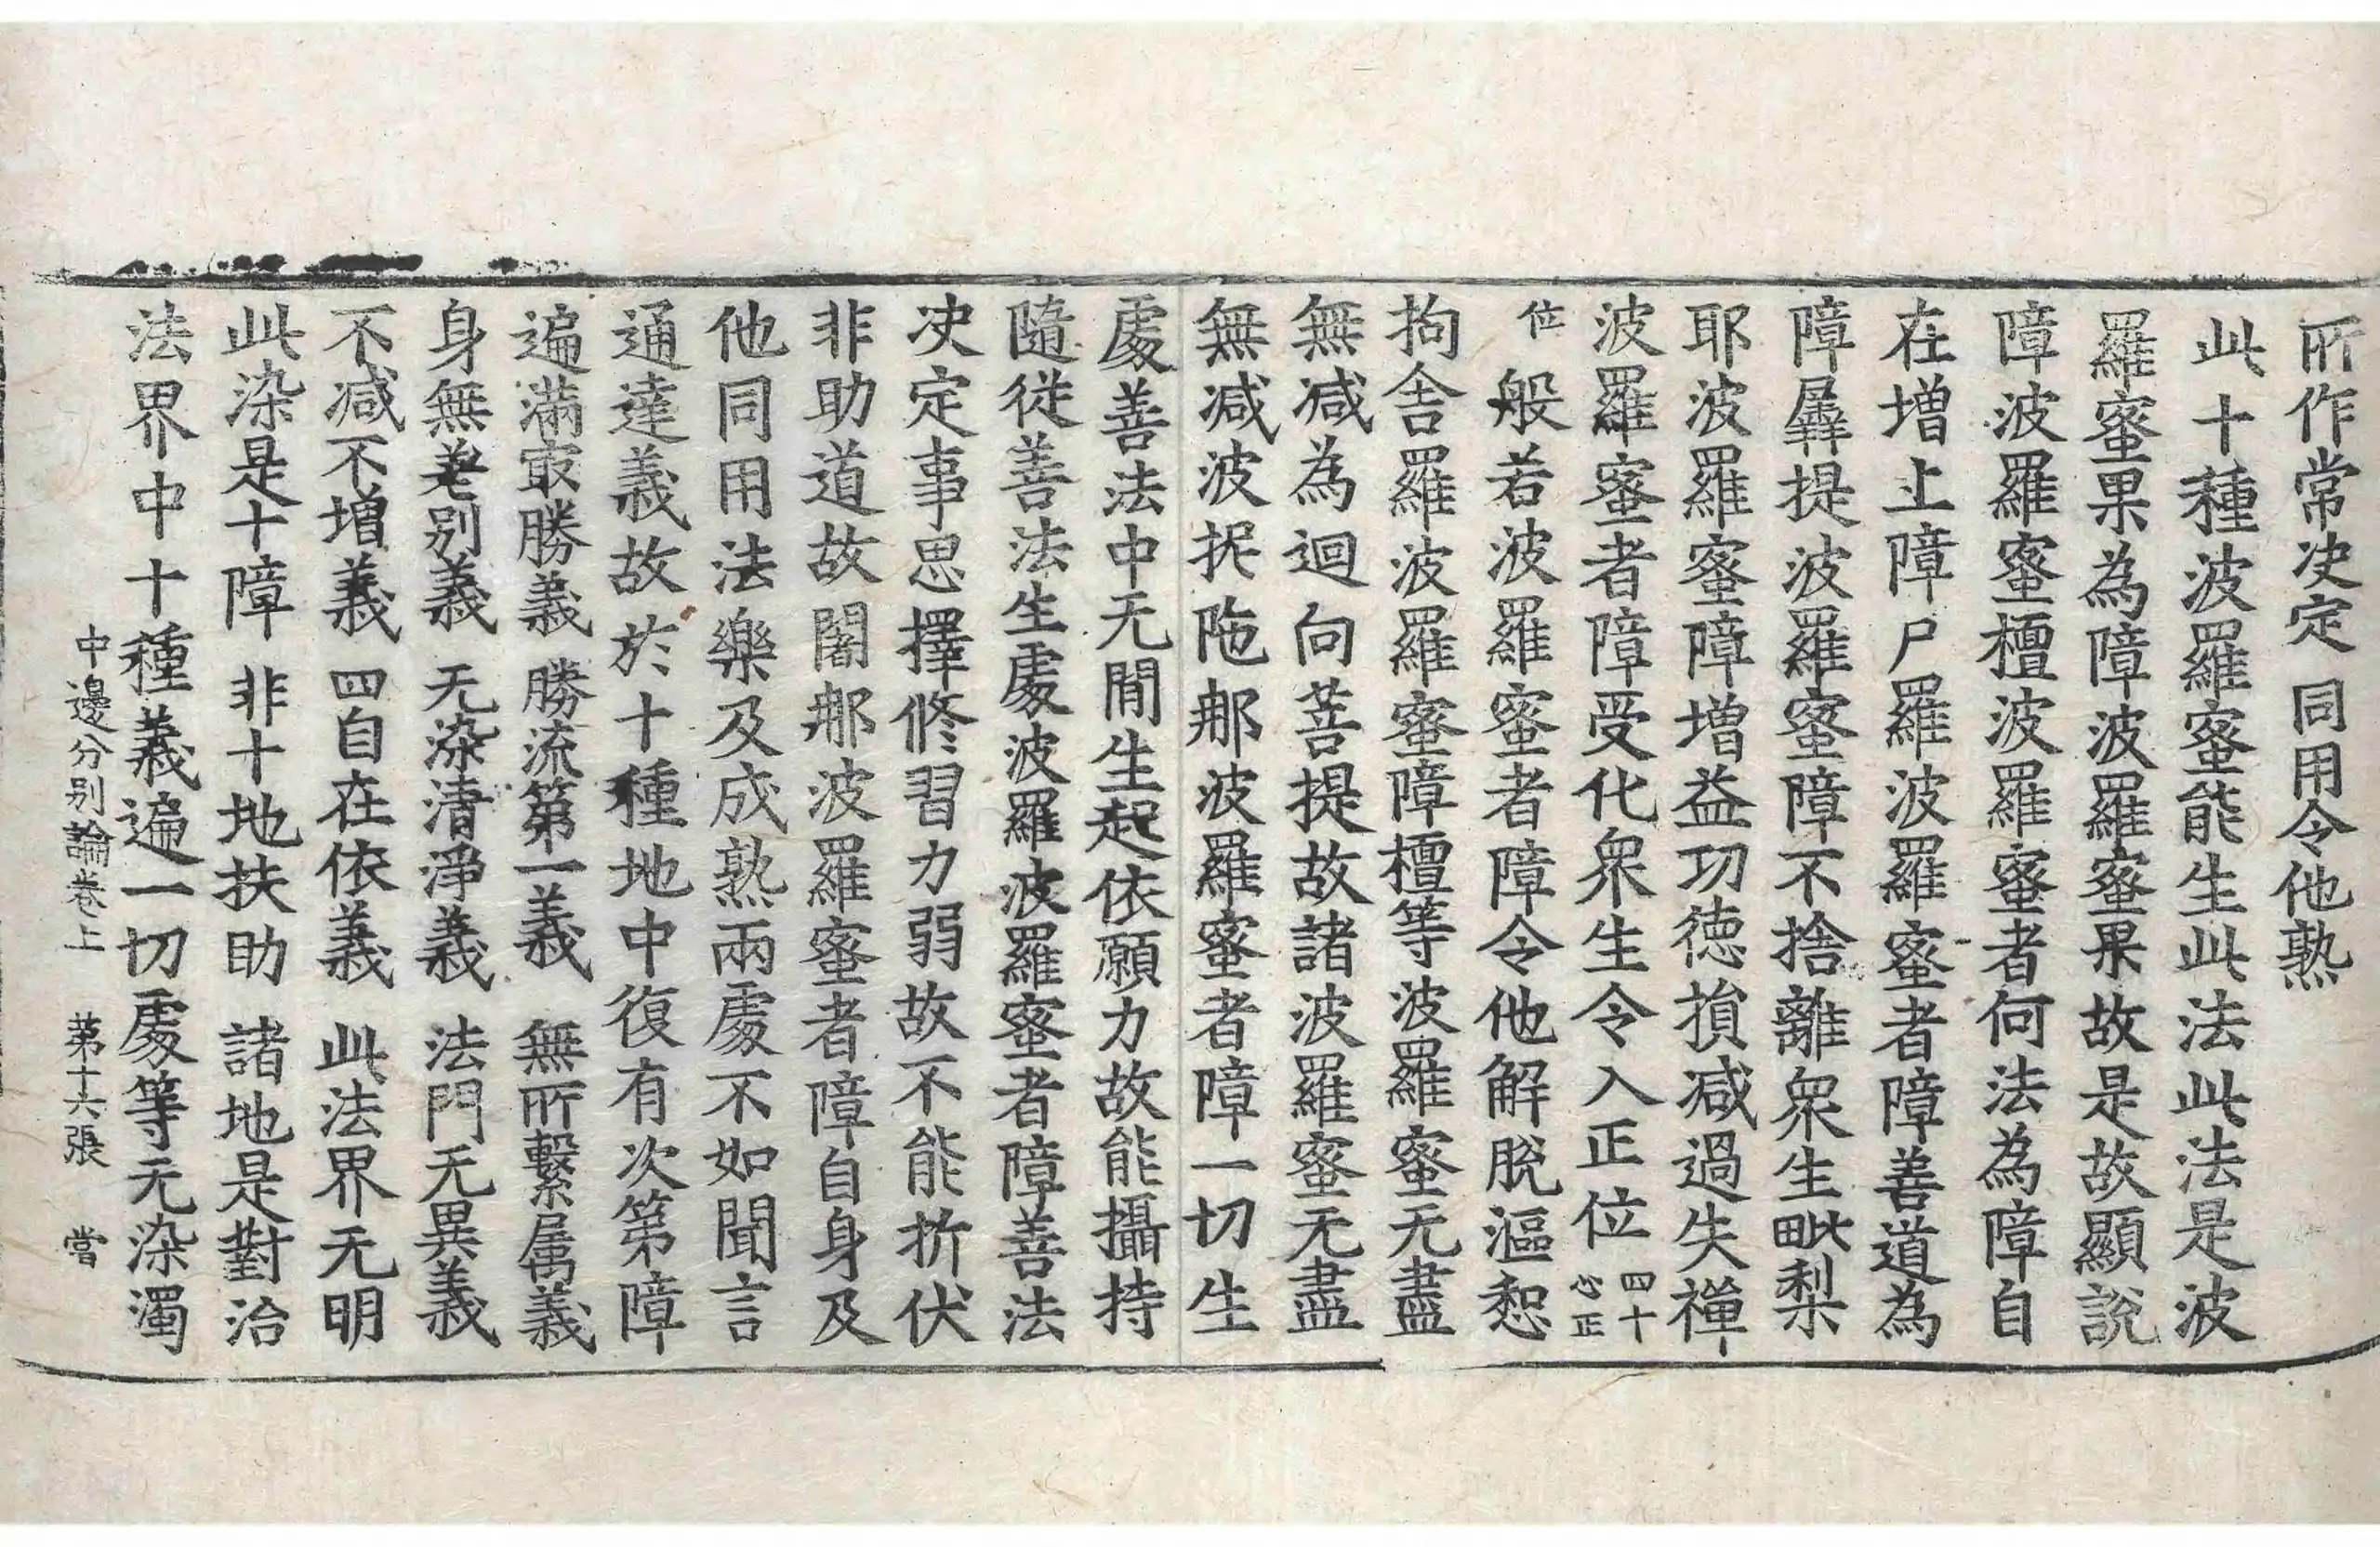 所作常决定 同用令他熟
此十種波羅蜜能生此法此法是波
羅蜜果為障波羅蜜果故是故顯說
障波羅蜜檀波羅蜜者何法為障自
在增上障尸羅波羅蜜者障善道為
障羼提波羅蜜障不捨離衆生毗梨
耶波羅蜜障增益功德損减過失禪
波羅蜜者障受化衆生令入正位四十心正
位般若波羅蜜者障令他解脫漚惒
拘舍羅波羅蜜障檀等波羅蜜无盡
無减為迴向菩提故諸波羅蜜无盡
無减波抳陁那波羅蜜者障一切生
處善法中无間生起依願力故能攝持
隨從善法生處波羅波羅蜜者障善法
决定事思擇修習力弱故不能折伏
非助道故闍那波羅蜜者障自身及
他同用法樂及成熟兩處不如聞言
通達義故於十種地中復有次第障
遍滿㝡勝義 勝流第一義 無所繫属義
身無差別義 无染清淨義 法門无異義
不减不增義 四自在依義 此法界无明
此染是十障 非十地扶助 諸地是對治
法界中十種義遍一切處等无染濁
中邊分別論卷上 第十六張 當